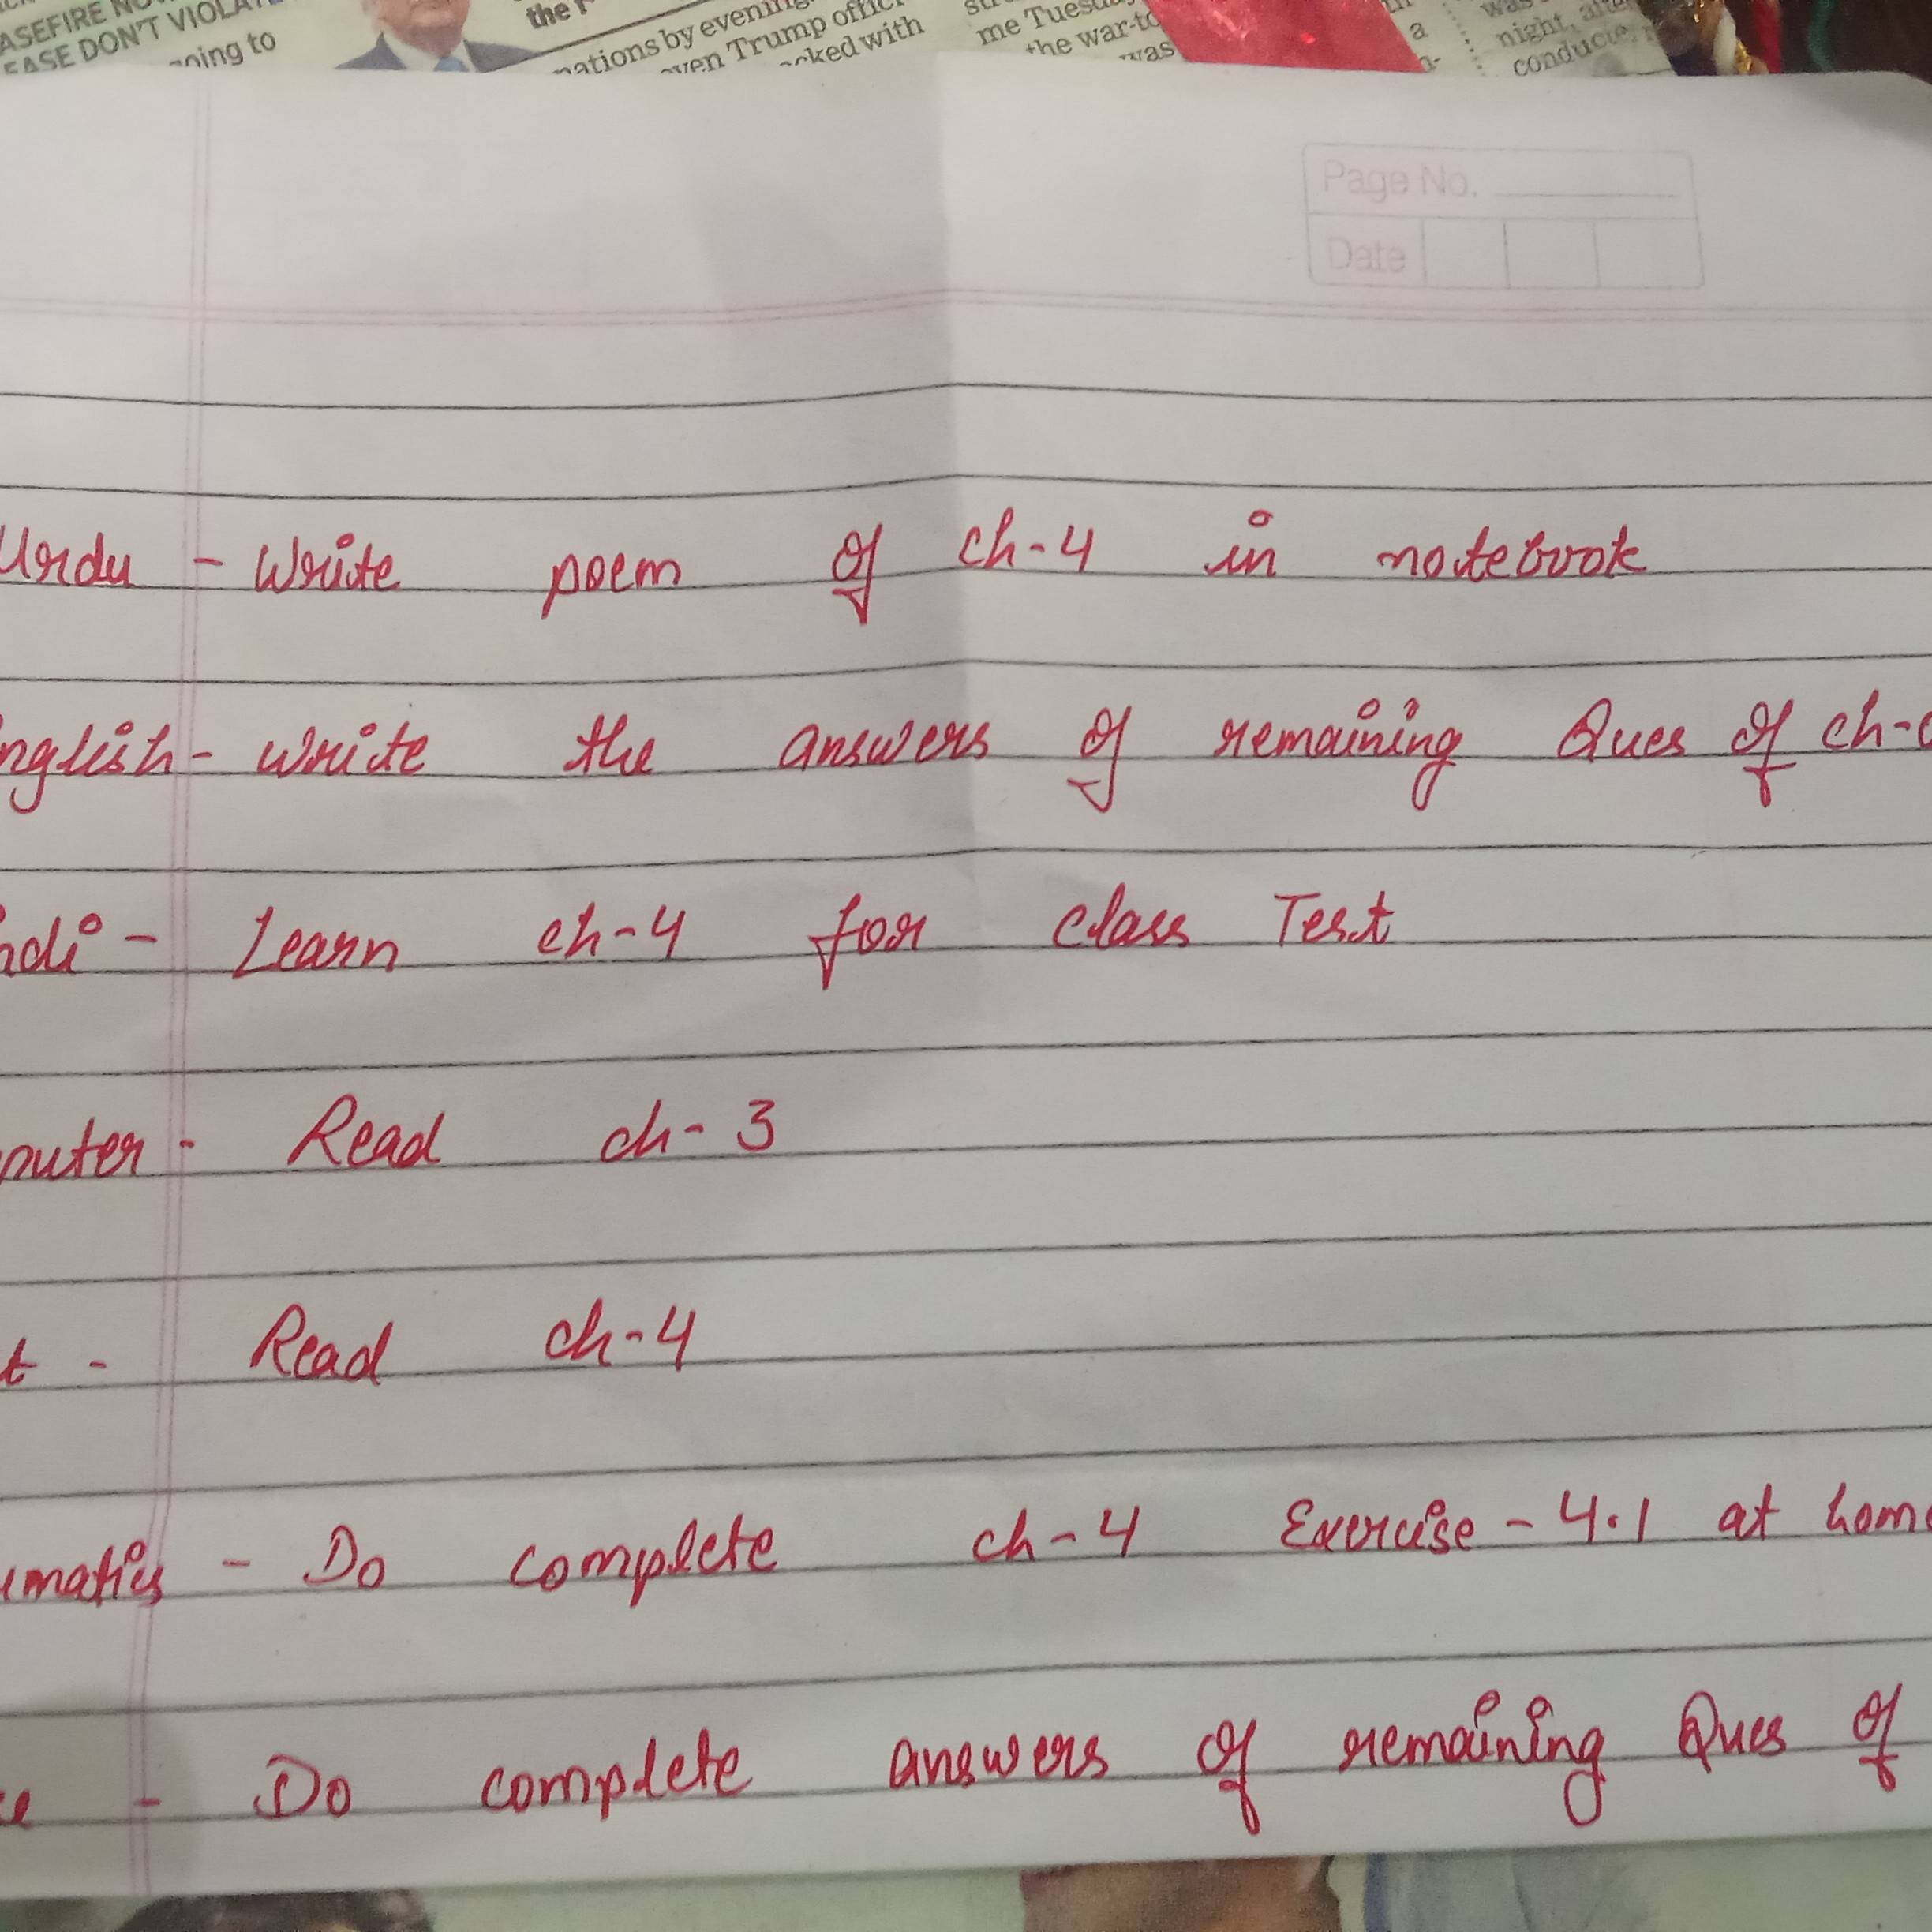 ASEFIRE NO
EASE DON'T VIOLATE
ning to
the
nations by evening
even Trump offici
cked with
me Tuesday
the war-to
was
a
night, afte
conducte
Page No.
Date
Urdu - Write poem of ch-4 in notebook
nglish- write the answers of remaining Ques of ch-
ndi - Learn ch-4 for class Test
puter - Read ch-3
t - Read ch-4
ematics - Do complete ch-4 Exercise - 4.1 at hom
ce - Do complete answers of remaining Ques of